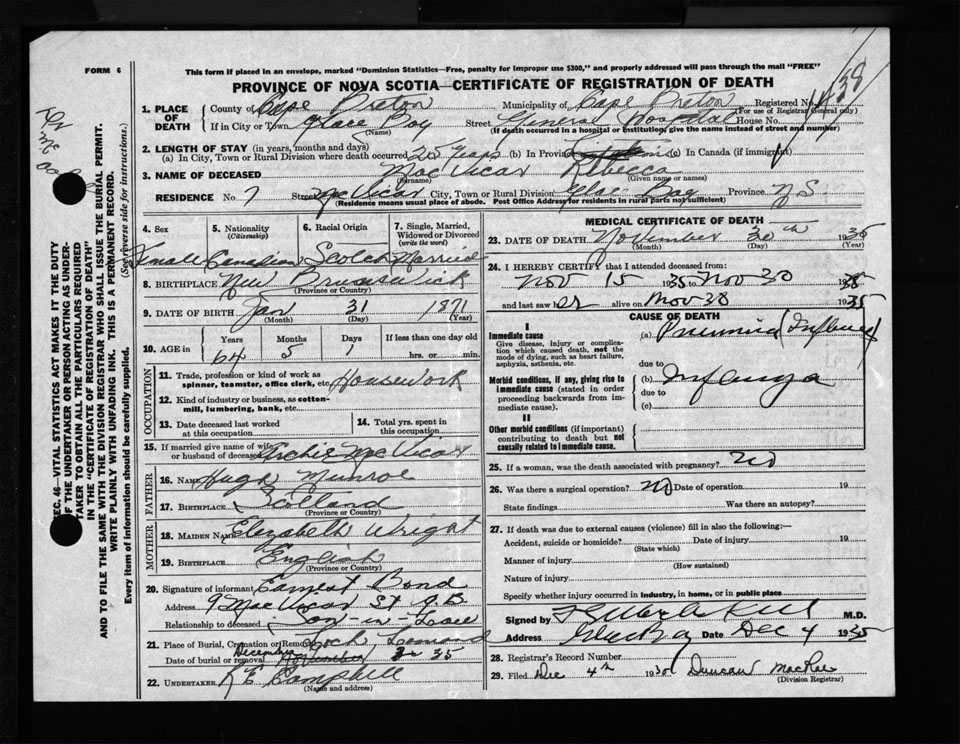 FORM 6
This form if placed in an envelope, marked "Dominion Statistics—Free, penalty for improper use $300," and properly addressed will pass through the mail "FREE"
PROVINCE OF NOVA SCOTIA—CERTIFICATE OF REGISTRATION OF DEATH
1. PLACE OF DEATH
County of Cape Breton Municipality of Cape Breton Registered No.
(For use of Registrar General only)
If in City or Town Glace Bay Street General Hospital House No.
(Name) (If death occurred in a hospital or institution, give the name instead of street and number)
2. LENGTH OF STAY (in years, months and days)
(a) In City, Town or Rural Division where death occurred 25 Years (b) In Province (c) In Canada (if immigrant)
3. NAME OF DECEASED MacVicar Rebecca
(Surname) (Given name or names)
RESIDENCE No. 7 Street MacVicar City, Town or Rural Division Glace Bay Province N S
(Residence means usual place of abode. Post Office Address for residents in rural parts not sufficient)
4. Sex
Female
5. Nationality (Citizenship)
Canadian
6. Racial Origin
Scotch
7. Single, Married, Widowed or Divorced (write the word)
Married
8. BIRTHPLACE New Brunswick
(Province or Country)
9. DATE OF BIRTH Jan 31 1871
(Month) (Day) (Year)
10. AGE in
Years Months Days If less than one day old
64 5 1 hrs. or min.
OCCUPATION
11. Trade, profession or kind of work as spinner, teamster, office clerk, etc. Housework
12. Kind of industry or business, as cotton-mill, lumbering, bank, etc.
13. Date deceased last worked at this occupation
14. Total yrs. spent in this occupation
15. If married give name of wife or husband of deceased Archie MacVicar
FATHER
16. NAME Hugh Munroe
17. BIRTHPLACE Scotland
(Province or Country)
MOTHER
18. MAIDEN NAME Elizabeth Wright
19. BIRTHPLACE English
(Province or Country)
20. Signature of informant Earnest Bond
Address 9 MacVicar St G.B
Relationship to deceased Son-in-Law
21. Place of Burial, Cremation or Removal Loch Lomond
Date of burial or removal December 35
22. UNDERTAKER Campbell
(Name and address)
MEDICAL CERTIFICATE OF DEATH
23. DATE OF DEATH November 30th 1935
(Month) (Day) (Year)
24. I HEREBY CERTIFY that I attended deceased from:
Nov 15 1935 to Nov 30 1935
and last saw her alive on Nov 30 1935
CAUSE OF DEATH
I
Immediate cause
Give disease, injury or complication which caused death, not the mode of dying, such as heart failure, asphyxia, asthenia, etc.
(a)
due to
Morbid conditions, if any, giving rise to immediate cause (stated in order proceeding backwards from immediate cause).
(b) Influenza
due to
(c)
II
Other morbid conditions (if important) contributing to death but not causally related to immediate cause.
25. If a woman, was the death associated with pregnancy? No
26. Was there a surgical operation? No Date of operation 19
State findings Was there an autopsy?
27. If death was due to external causes (violence) fill in also the following:—
Accident, suicide or homicide? Date of injury 19
(State which)
Manner of injury
(How sustained)
Nature of injury
Specify whether injury occurred in Industry, in home, or in public place
Signed by M.D.
Address Glace Bay Date Dec 4 1935
28. Registrar's Record Number
29. Filed Dec 4th 193 Duncan MacRae
(Division Registrar)
SEC. 46—VITAL STATISTICS ACT MAKES IT THE DUTY
OF THE UNDERTAKER OR PERSON ACTING AS UNDERTAKER TO OBTAIN ALL THE PARTICULARS REQUIRED
IN THE "CERTIFICATE OF REGISTRATION OF DEATH"
AND TO FILE THE SAME WITH THE DIVISION REGISTRAR WHO SHALL ISSUE THE BURIAL PERMIT.
WRITE PLAINLY WITH UNFADING INK. THIS IS A PERMANENT RECORD.
Every item of information should be carefully supplied. (See reverse side for instructions.)